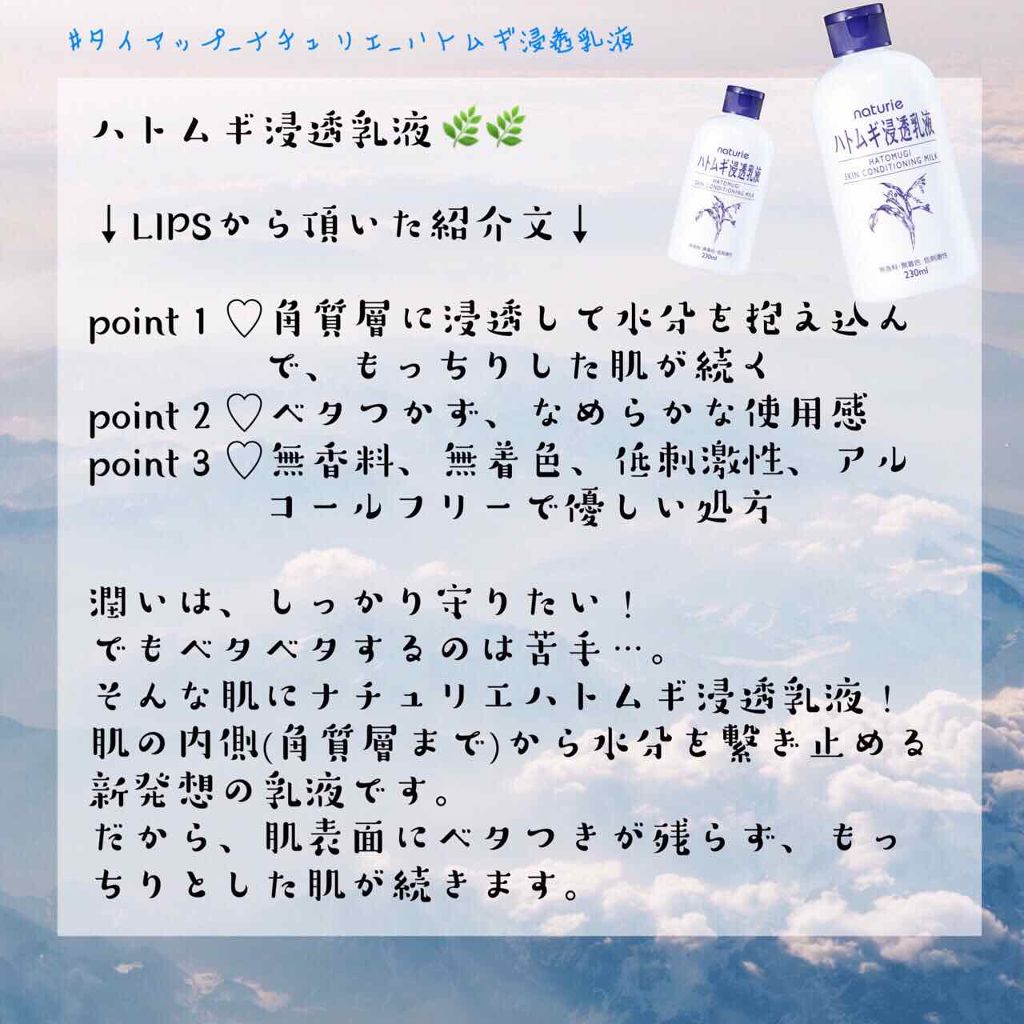 #タイアップ_ナチュリエ_ハトムギ浸透乳液
naturie
ハトムギ浸透乳液
HATOMUGI
SKIN CONDITIONING MILK
無香料・無着色・低刺激性
230ml
naturie
ハトムギ浸透乳液
HATOMUGI
SKIN CONDITIONING MILK
230ml
ハトムギ浸透乳液🌿🌿
↓LIPSから頂いた紹介文↓
point 1 ♡角質層に浸透して水分を抱え込ん
で、もっちりした肌が続く
point 2 ♡ベタつかず、なめらかな使用感
point 3 ♡無香料、無着色、低刺激性、アル
コールフリーで優しい処方
潤いは、しっかり守りたい！
でもベタベタするのは苦手…。
そんな肌にナチュリエハトムギ浸透乳液！
肌の内側(角質層まで)から水分を繋ぎ止める
新発想の乳液です。
だから、肌表面にベタつきが残らず、もっ
ちりとした肌が続きます。